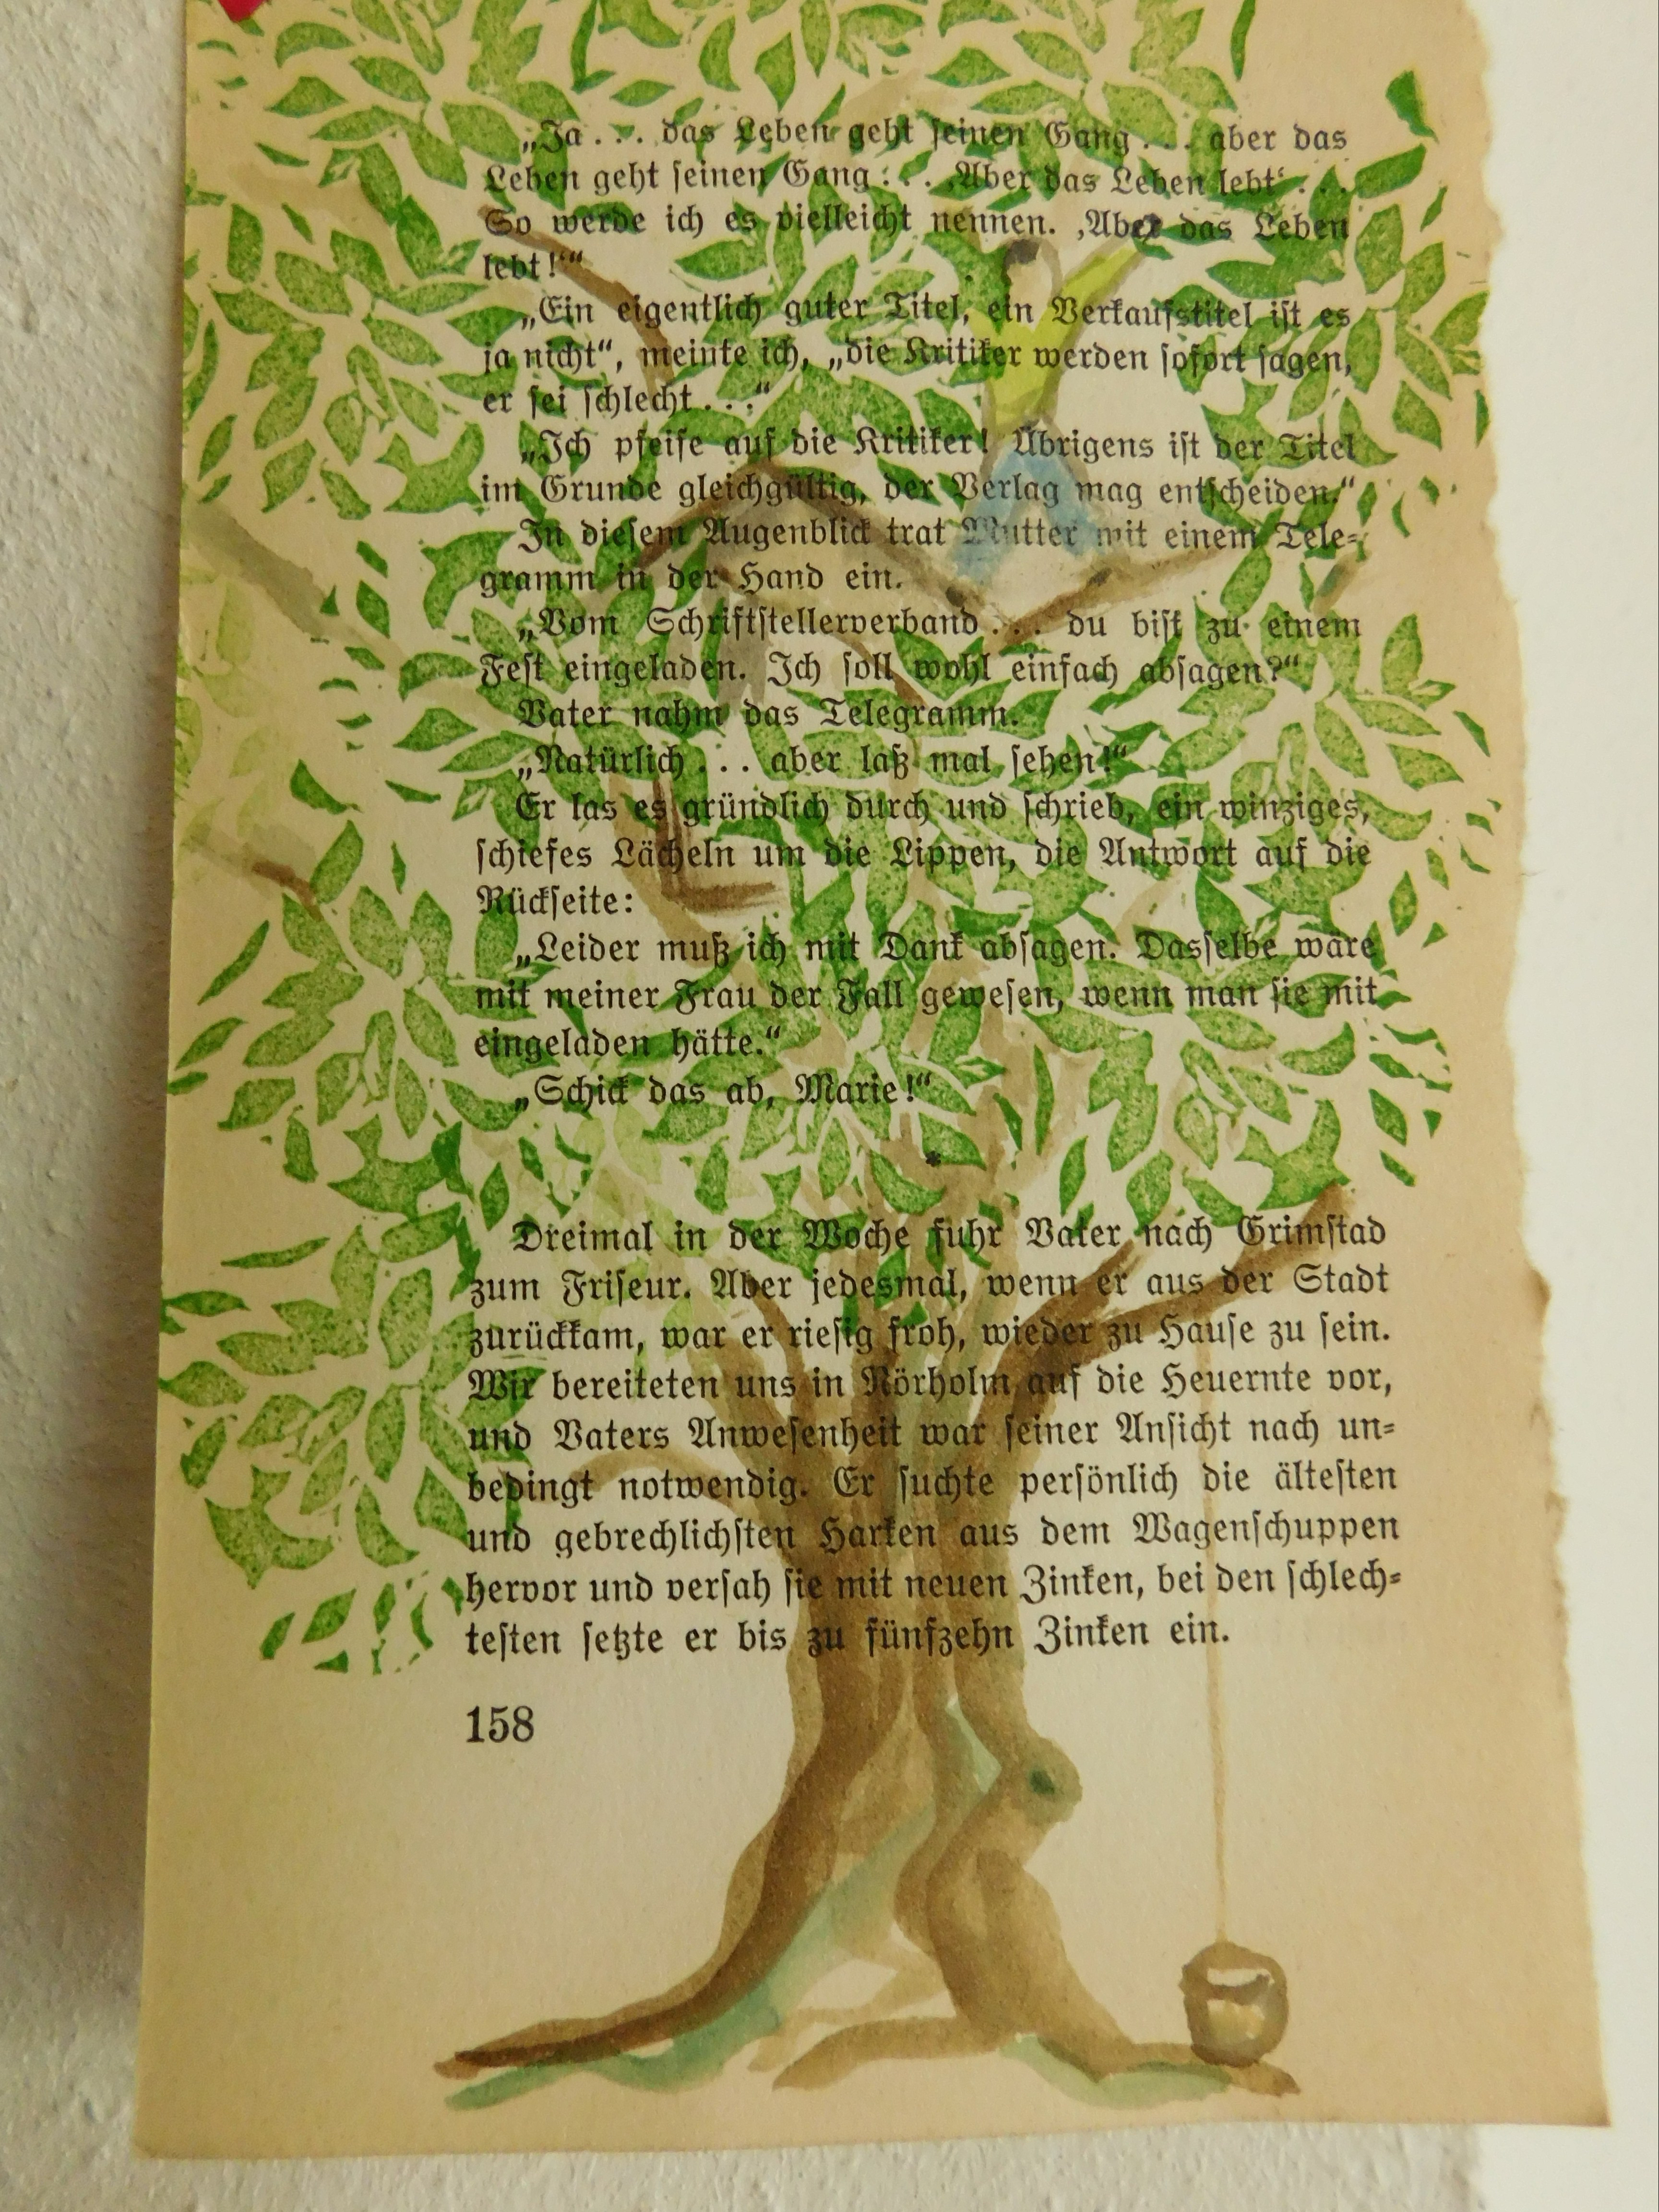 „Ja . . . das Leben geht seinen Gang . . . aber das
Leben geht seinen Gang . . . ‚Aber das Leben lebt‘ . . .
So werde ich es vielleicht nennen. ‚Aber das Leben
lebt!‘“
„Ein eigentlich guter Titel, ein Verkaufstitel ist es
ja nicht“, meinte ich, „die Kritiker werden sofort sagen,
er sei schlecht . . .“
„Ich pfeife auf die Kritiker! Übrigens ist der Titel
im Grunde gleichgültig, der Verlag mag entscheiden.“
In diesem Augenblick trat Mutter mit einem Tele-
gramm in der Hand ein.
„Vom Schriftstellerverband . . . du bist zu einem
Fest eingeladen. Ich soll wohl einfach absagen?“
Vater nahm das Telegramm.
„Natürlich . . . aber laß mal sehen!“
Er las es gründlich durch und schrieb, ein winziges,
schiefes Lächeln um die Lippen, die Antwort auf die
Rückseite:
„Leider muß ich mit Dank absagen. Dasselbe wäre
mit meiner Frau der Fall gewesen, wenn man sie mit
eingeladen hätte.“
„Schick das ab, Marie!“
*
Dreimal in der Woche fuhr Vater nach Grimstad
zum Friseur. Aber jedesmal, wenn er aus der Stadt
zurückkam, war er riesig froh, wieder zu Hause zu sein.
Wir bereiteten uns in Nörholm auf die Heuernte vor,
und Vaters Anwesenheit war seiner Ansicht nach un-
bedingt notwendig. Er suchte persönlich die ältesten
und gebrechlichsten Harken aus dem Wagenschuppen
hervor und versah sie mit neuen Zinken, bei den schlech-
testen setzte er bis zu fünfzehn Zinken ein.
158